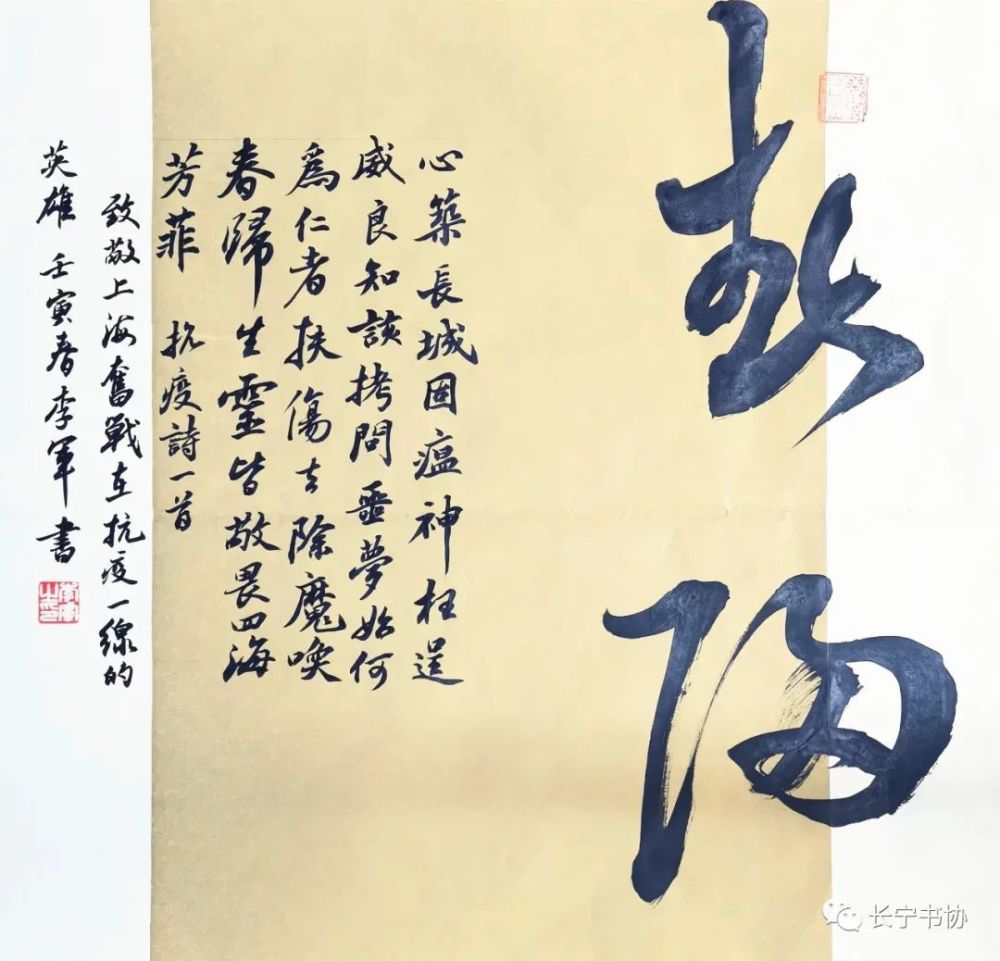 春归
心築長城固瘟神枉逞
威良知該拷問噩夢始何
爲仁者扶傷去除魔喚
春歸生靈皆敬畏四海
芳菲 抗疫詩一首
致敬上海奮戰在抗疫一線的
英雄 壬寅春李軍書
长宁书协